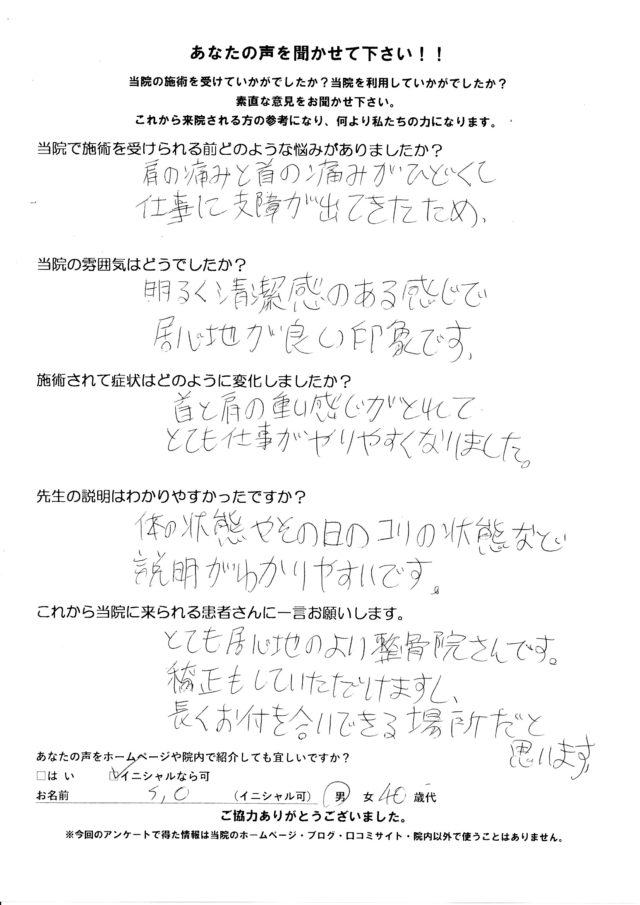 あなたの声を聞かせて下さい！！
当院の施術を受けていかがでしたか？当院を利用していかがでしたか？
素直な意見をお聞かせ下さい。
これから来院される方の参考になり、何より私たちの力になります。
当院で施術を受けられる前どのような悩みがありましたか？
肩の痛みと首の痛みがひどくて
仕事に支障が出てきたため、
当院の雰囲気はどうでしたか？
明るく清潔感のある感じで
居心地が良い印象です、
施術されて症状はどのように変化しましたか？
首と肩の重い感じがとれて
とても仕事がやりやすくなりました。
先生の説明はわかりやすかったですか？
体の状態やその日のコリの状態など
説明がわかりやすいです。
これから当院に来られる患者さんに一言お願いします。
とても居心地のよい整骨院さんです。
矯正もしていただけますし、
長くお付き合いできる場所だと
思います、
あなたの声をホームページや院内で紹介しても宜しいですか？
□はい ☑イニシャルなら可
お名前 S,O （イニシャル可） 男 女 40 歳代
ご協力ありがとうございました。
※今回のアンケートで得た情報は当院のホームページ・ブログ・口コミサイト・院内以外で使うことはありません。